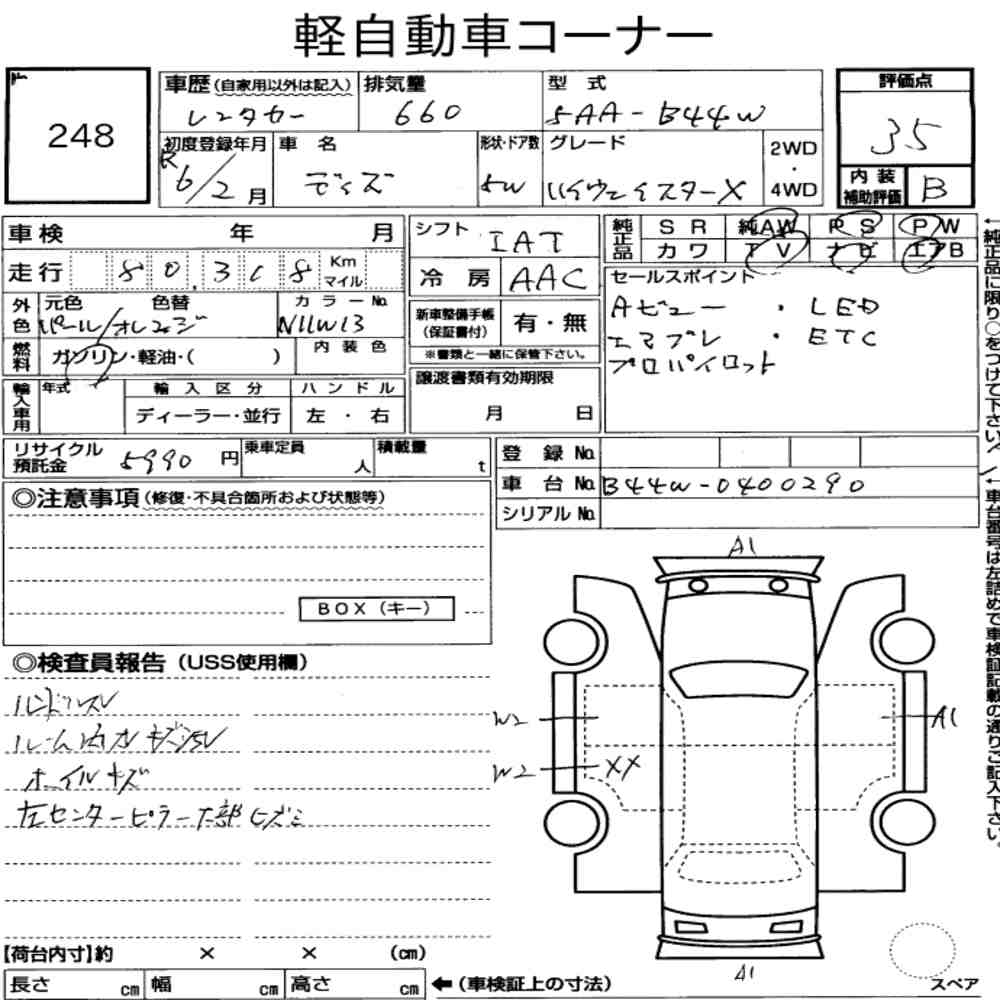 軽自動車コーナー
248
車歴(自家用以外は記入) 排気量 型式 評価点
レンタカー 660 5AA-B44W 35
初度登録年月 車名 形状・ドア数 グレード 2WD・4WD 内装補助評価
R6/2月 デイズ 5W ハイウェイスターX B
車検 年 月 シフト IAT
走行 80,318 Km マイル 冷房 AAC
純正品 SR 純AW PS PW
カワ TV ナビ エアB
外色 元色 色替 カラーNo.
パール/オレンジ N11W13
新車整備手帳(保証書付) 有・無
※書類と一緒に保管下さい。
セールスポイント
Aビュー ・LED
エマブレ ・ETC
プロパイロット
燃料 ガソリン・軽油・( ) 内装色
輸入車用 年式 輸入区分 ハンドル
ディーラー・並行 左・右
譲渡書類有効期限
月 日
リサイクル預託金 5990円 乗車定員 人 積載量 t
登録No.
車台No. B44W-0400290
シリアルNo.
◎注意事項(修復・不具合箇所および状態等)
BOX(キー)
◎検査員報告(USS使用欄)
ハンドルスレ
ルーム内オキズ
ホイルキズ
左センターピラー下部ヒズミ
A1
W2
A1
W2 XX
A1
スペア
【荷台内寸】約 × × (cm)
長さ cm 幅 cm 高さ cm ←(車検証上の寸法)
←純正品に限り○をつけて下さい/
←車台番号は左詰めで車検証記載の通りご記入下さい。